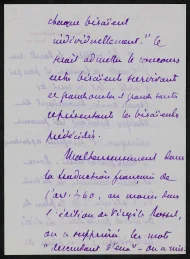 chaque bisaïeul
individuellement." Ce
serait admettre le concours
entre bisaïeuls survivant
et grands oncles et grands tantes
représentant les bisaïeuls
prédécédés.
Malheureusement dans
la traduction française de
l'art. 460, au moins dans
l'édition de Virgile Rossel,
on a supprimé les mots
"descendant d'eux" – on a mis